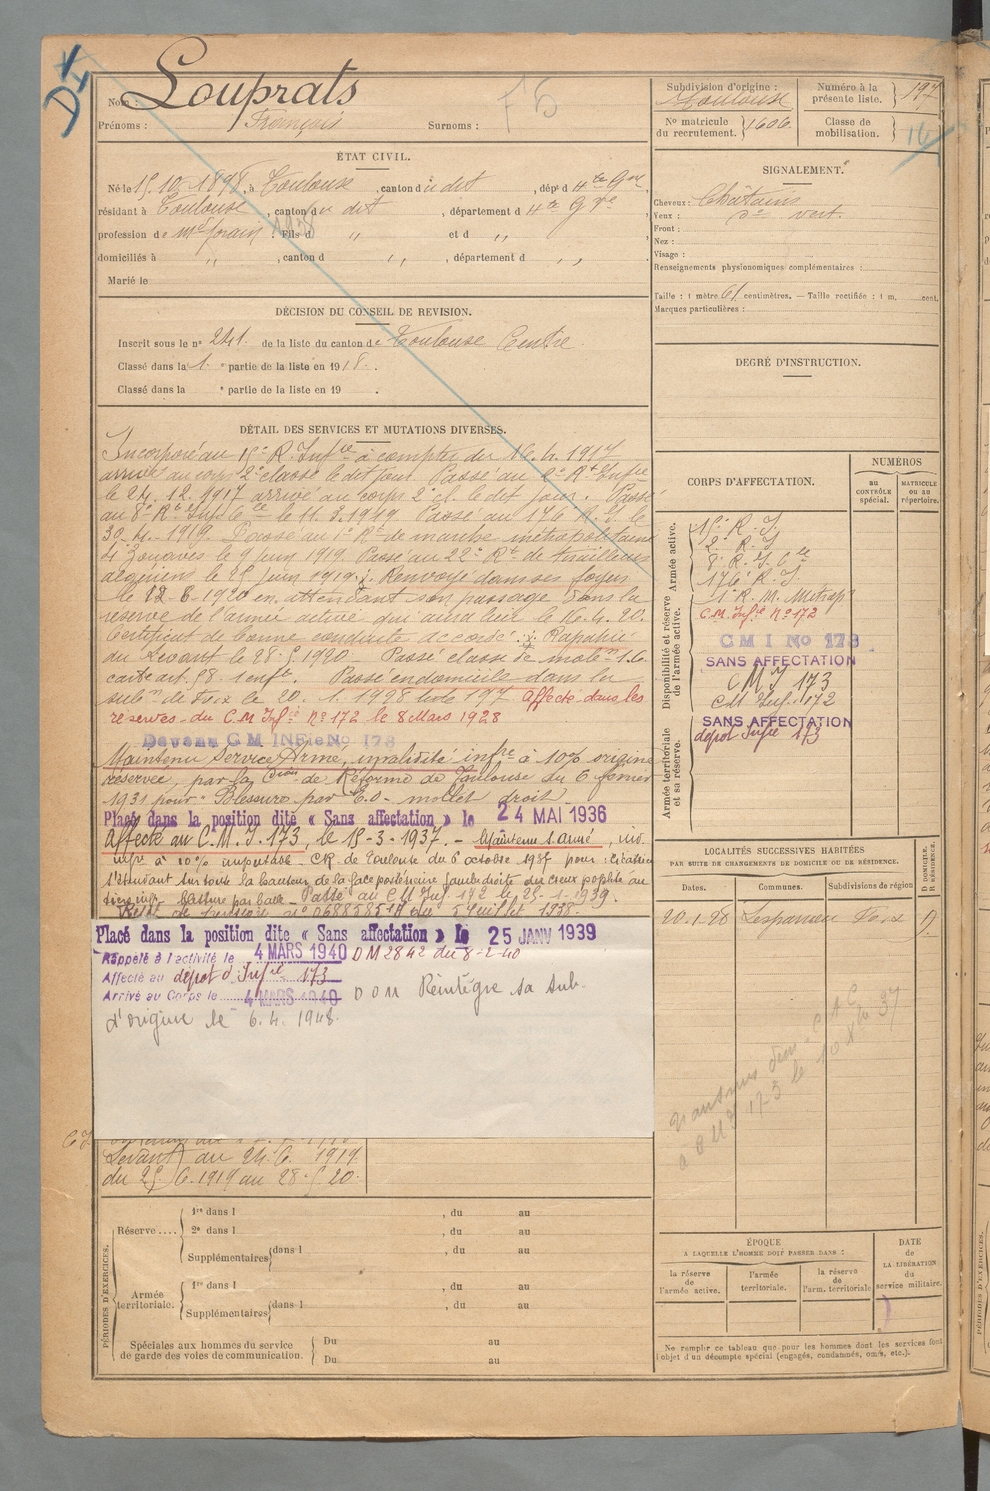 Nom : Louprats
Prénoms : François Surnoms :
F5
Subdivision d'origine : Toulouse
Numéro à la présente liste. 197
No matricule du recrutement. 1606.
Classe de mobilisation. 16
ÉTAT CIVIL.
Né le 15.10.1898, à Toulouse, canton du dit, dépt d Hte Gne,
résidant à Toulouse, canton du dit, département d Hte Gne,
profession de Md forain : Fils d " et d ",
domiciliés à ", canton d ", département d "
Marié le
SIGNALEMENT.
Cheveux : Châtains
Yeux : do vert.
Front :
Nez :
Visage :
Renseignements physionomiques complémentaires :
Taille : 1 mètre 61 centimètres. — Taille rectifiée : 1 m. cent.
Marques particulières :
DÉCISION DU CONSEIL DE REVISION.
Inscrit sous le no 241. de la liste du canton de Toulouse Centre.
Classé dans la 1. e partie de la liste en 1918.
Classé dans la e partie de la liste en 19 .
DEGRÉ D'INSTRUCTION.
DÉTAIL DES SERVICES ET MUTATIONS DIVERSES.
Incorporé au 15e R. Infie à compter du 16.4.1917
arrivé au corps 2e classe le dit jour. Passé au 2e Rt Infie
le 24.12.1917 arrivé au corps 2e cl. le dit jour. Passé
au 8e Rt Infie Cle le 11.3.1919. Passé au 176 R.I. le
30-4-1919. Passé au 1er Rt de marche métropolitaine
4e Zouaves le 9 juin 1919. Passé au 22e Rt de tirailleurs
algériens le 25 juin 1919. Renvoyé dans ses foyers
le 12-6-1920 en attendant son passage dans la
réserve de l'armée active qui aura lieu le 16.4.20.
Certificat de bonne conduite accordé. Rapatrié
du Levant le 28.5.1920. Passé classe de mobon 16.
art. 58. 1 enft. Passé en domicile dans la
subon de Foix le 20.1.1928 liste 197 Affecté dans les
réserves du C.M Infie No 172 le 8 Mars 1928
Devenu C M INFie No 173
Maintenu Service Armé, invalidité infre à 10% origine
réservée, par la Cion de Réforme de Toulouse du 6 février
1931 pour : Blessure par E.O - mollet droit
Placé dans la position dite « Sans affectation » le 24 MAI 1936
Affecté au C.M.I. 173, le 15-3-1937. - Maintenu S. Armé, inv.
infre à 10% imputable - CR. de Toulouse du 6 octobre 1937 pour : Cicatrice
s'étendant sur toute la hauteur de la face postérieure jambe droite du creux poplité au
Passé au CM Inf. 172 le 25-1-1939.
no 0688585 du 5 Juillet 1938.
Placé dans la position dite « Sans affectation » le 25 JANV 1939
Rappelé à l'activité le 4 MARS 1940 DM 2842 du 8-2-40
Affecté au dépôt d'Infie 173
Arrivé au Corps le 4 MARS 1940 DOM Réintègre sa sub.
d'origine le 6.4.1948.
Levant) au 24.6.1919.
du 25.6.1919 au 28.5.20.
CORPS D'AFFECTATION.
NUMÉROS
au CONTRÔLE spécial.
MATRICULE ou au répertoire.
Armée active.
Disponibilité et réserve de l'armée active.
Armée territoriale et sa réserve.
15e R.I.
2e R.I
8e R.I. Cle
176e R.I.
1er R.M. Métrop
C.M. Infie No 172
C M I No 173
SANS AFFECTATION
C M I 173
CM Inf. 172
SANS AFFECTATION
dépôt Infie 173
LOCALITÉS SUCCESSIVES HABITÉES
PAR SUITE DE CHANGEMENTS DE DOMICILE OU DE RÉSIDENCE.
Dates. Communes. Subdivisions de région
D DOMICILE. R RÉSIDENCE.
20.1.28 Lesparrou Foix D
le 10 37
PÉRIODES D'EXERCICES.
Réserve ....
1re dans l , du au
2e dans l , du au
Supplémentaires dans l , du au
Armée territoriale.
1re dans l , du au
Supplémentaires dans l , du au
Spéciales aux hommes du service de garde des voies de communication.
Du au
Du au
ÉPOQUE
À LAQUELLE L'HOMME DOIT PASSER DANS :
la réserve de l'armée active.
l'armée territoriale.
la réserve de l'arm. territoriale
DATE de LA LIBÉRATION du service militaire.
Ne remplir ce tableau que pour les hommes dont les services font
l'objet d'un décompte spécial (engagés, condamnés, omis, etc.).